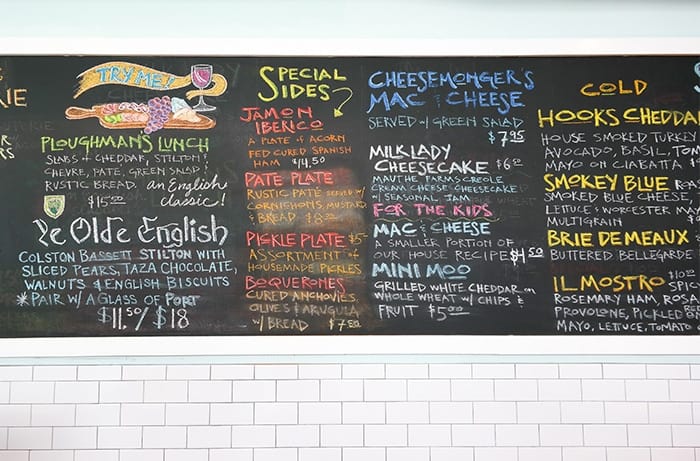 RIE
TRY ME!
PLOUGHMAN'S LUNCH
SLABS of CHEDDAR, STILTON &
CHEVRE, PATE, GREEN SALAD &
RUSTIC BREAD. an English
$15.00 classic!
Ye Olde English
COLSTON BASSETT STILTON WITH
SLICED PEARS, TAZA CHOCOLATE,
WALNUTS & ENGLISH BISCUITS
* PAIR W/ A GLASS OF PORT
$11.00/ $18
SPECIAL
SIDES
JAMON
IBERICO
A PLATE of ACORN
FED CURED SPANISH
HAM $14.50
PATE PLATE
RUSTIC PATE SERVED W/
CORNICHONS, MUSTARD
& BREAD. $8.00
PICKLE PLATE $5
ASSORTMENT OF
HOUSEMADE PICKLES
BOQUERONES
CURED ANCHOVIES,
OLIVES & ARUGULA
W/ BREAD $7.50
CHEESEMONGER'S
MAC & CHEESE
SERVED W/ GREEN SALAD
$7.95
MILK LADY
CHEESECAKE $6.00
MAUTHE FARMS CREOLE
CREAM CHEESE CHEESECAKE
W/ SEASONAL JAM
FOR THE KIDS
MAC & CHEESE
A SMALLER PORTION OF
OUR HOUSE RECIPE $4.50
MINI MOO
GRILLED WHITE CHEDDAR ON
WHOLE WHEAT W/ CHIPS &
FRUIT $5.00
COLD
HOOKS CHEDDAR
HOUSE SMOKED TURKEY
AVOCADO, BASIL, TOM
MAYO ON CIABATTA
SMOKEY BLUE
SMOKED BLUE CHEESE,
LETTUCE & WORCESTER MA
MULTIGRAIN
BRIE DE MEAUX
BUTTERED BELLEGARDE
IL MOSTRO $10.5
SPIC
ROSEMARY HAM, ROSA
PROVOLONE, PICKLED
MAYO, LETTUCE, TOMATO